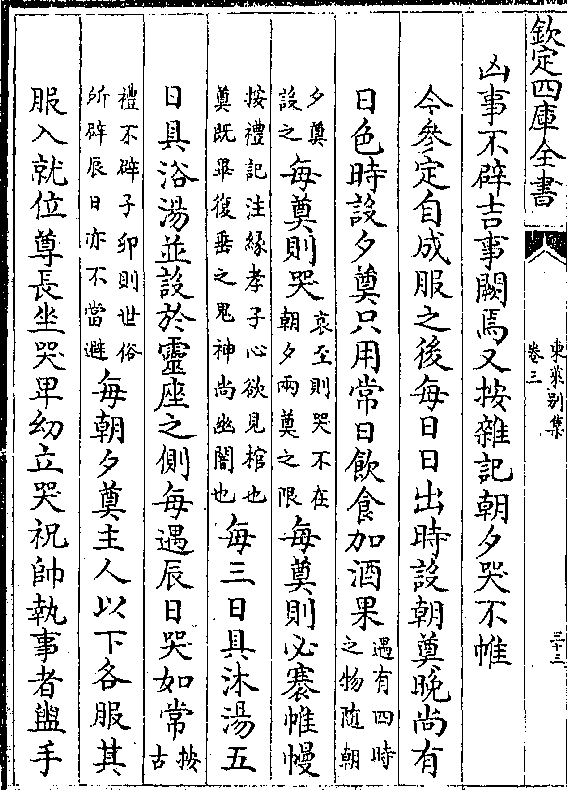 欽定四庫全書
東萊別集
卷三
三十三
凶事不辟吉事闕焉又按雜記朝夕哭不帷
今參定自成服之後每日日出時設朝奠晚尚有
日色時設夕奠只用常日飲食加酒果遇有四時之物随朝
夕奠設之每奠則哭哀至則哭不在朝夕兩奠之限每奠則必褰帷幔
按禮記注緣孝子心欲見棺也奠既畢復垂之鬼神尚幽闇也每三日具沐湯五
日具浴湯並設於靈座之側每遇辰日哭如常按古
禮不辟子卯則世俗所辟辰日亦不當避每朝夕奠主人以下各服其
服入就位尊長坐哭卑幼立哭祝帥執事者盥手